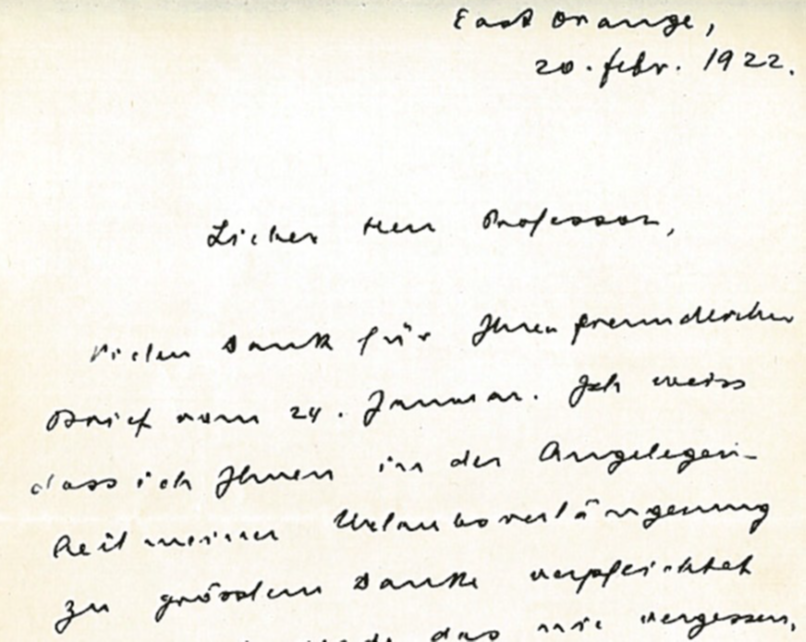 East Orange,
20. febr. 1922.
Lieber Herr Professor,
Vielen Dank für Ihren freundlichen
Brief vom 24. Januar. Ich weiss
dass ich Ihnen in der Angelegen-
heit meiner Urlaubsverlängerung
zu grösstem Danke verpflichtet
das nie vergessen,